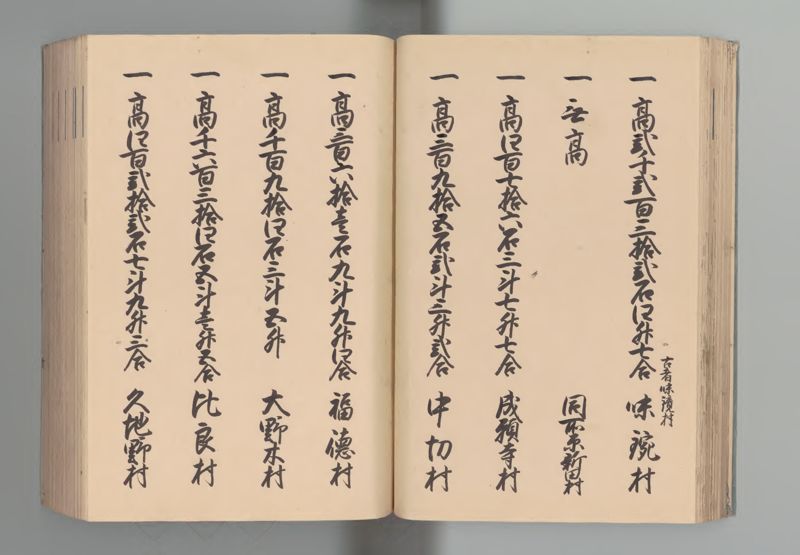 一 高弐千弐百三拾弐石四升七合 味琬村
古者味
一 無高 同所原新田村
一 高四百七拾六石二斗七升七合 成願寺村
一 高三百九拾五石弐斗三升弐合 中切村
一 高三百六拾壱石九斗九升四合 福徳村
一 高千百九拾四石三斗五升 大野木村
一 高千六百三拾四石五斗壱升五合 比良村
一 高四百弐拾弐石七斗九升三合 久地野村